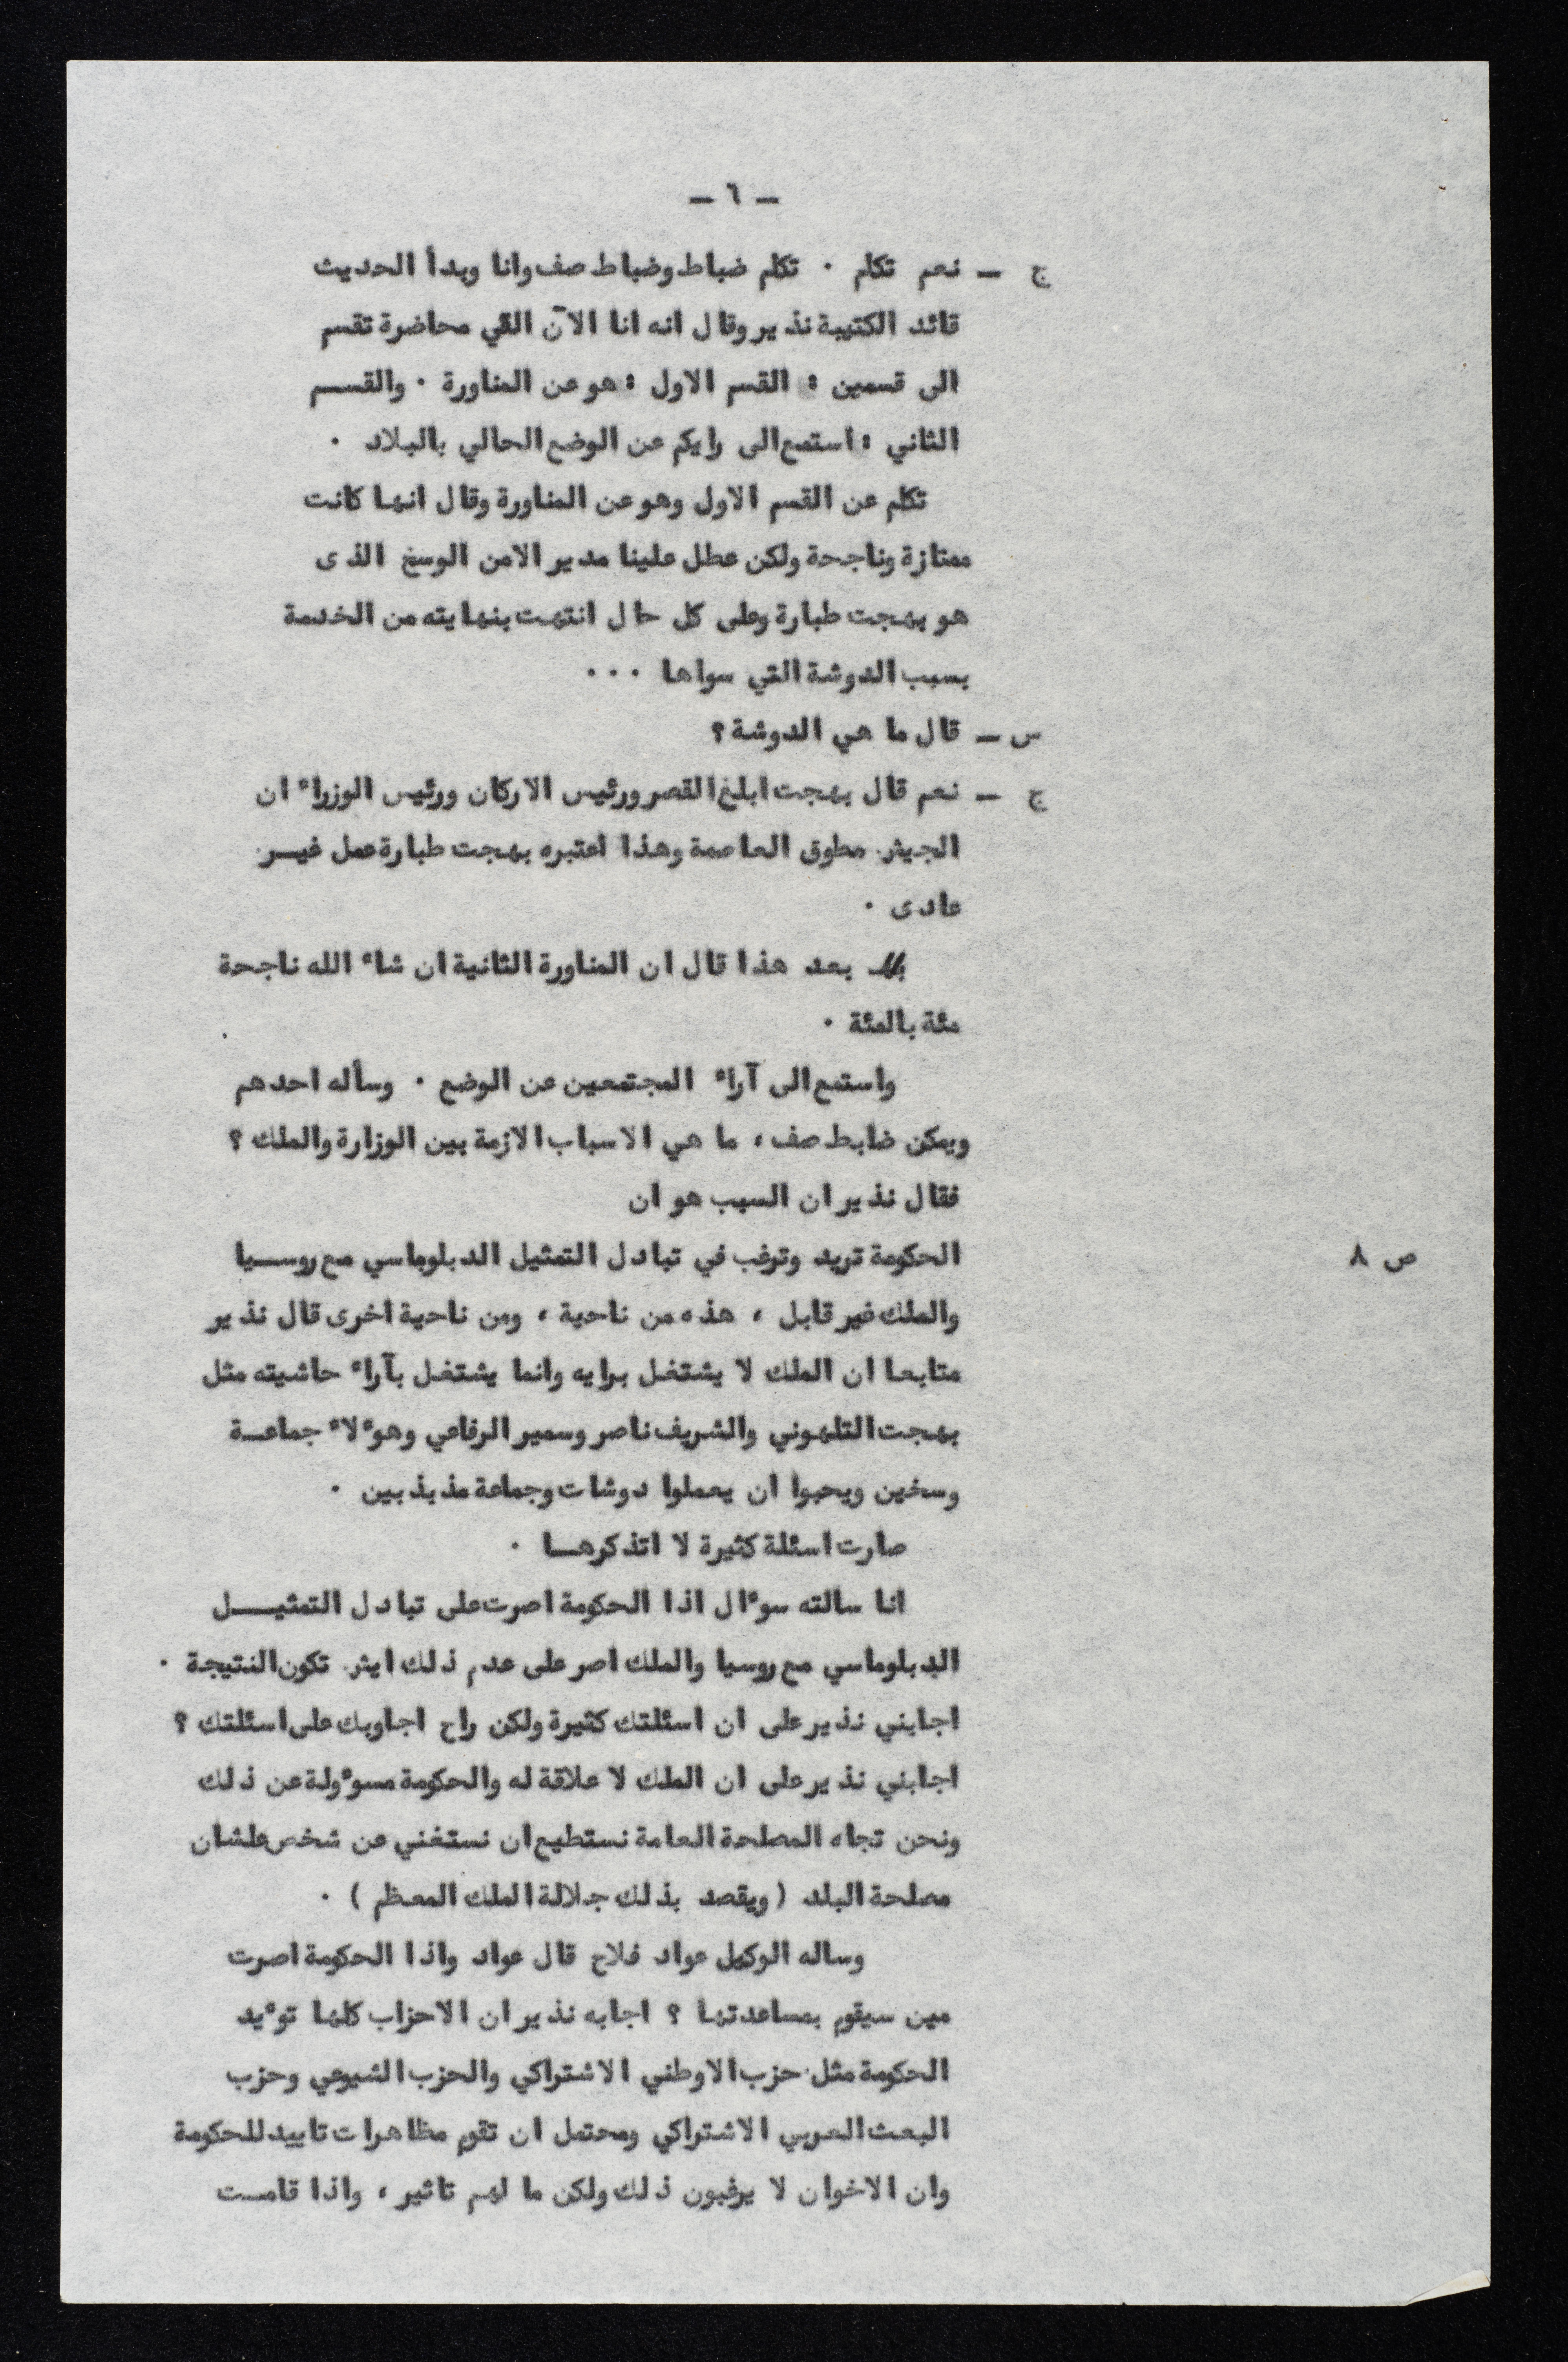 – ٦ –
ج – نعم تكلم ٠ تكلم ضباط وضباط صف وانا وبدأ الحديث
قائد الكتيبة نذير وقال انه انا الآن القي محاضرة تقسم
الى قسمين : القسم الاول : هو عن المناورة ٠ والقسم
الثاني : استمع الى رايكم عن الوضع الحالي بالبلاد ٠
تكلم عن القسم الاول وهو عن المناورة وقال انها كانت
ممتازة وناجحة ولكن عطل علينا مدير الامن الوسخ الذى
هو بهجت طبارة وعلى كل حال انتهت بنهايته من الخدمة
بسبب الدوشة التي سواها ٠٠٠
س – قال ما هي الدوشة ؟
ج – نعم قال بهجت ابلغ القصر ورئيس الاركان ورئيس الوزراء ان
الجيش مطوق العاصمة وهذا اعتبره بهجت طبارة عمل غير
عادى ٠
بعد هذا قال ان المناورة الثانية ان شاء الله ناجحة
مئة بالمئة ٠
واستمع الى آراء المجتمعين عن الوضع ٠ وسأله احدهم
ويمكن ضابط صف ، ما هي الاسباب الازمة بين الوزارة والملك ؟
فقال نذير ان السبب هو ان
ص ٨ الحكومة تريد وترغب في تبادل التمثيل الدبلوماسي مع روسيا
والملك غير قابل ، هذه من ناحية ، ومن ناحية اخرى قال نذير
متابعا ان الملك لا يشتغل برايه وانما يشتغل بآراء حاشيته مثل
بهجت التلهوني والشريف ناصر وسمير الرفاعي وهوءلاء جماعة
وسخين ويحبوا ان يعملوا دوشات وجماعة مذبذبين ٠
صارت اسئلة كثيرة لا اتذكرها ٠
انا سالته سوءال اذا الحكومة اصرت على تبادل التمثيل
الدبلوماسي مع روسيا والملك اصر على عدم ذلك ايش تكون النتيجة ٠
اجابني نذير على ان اسئلتك كثيرة ولكن راح اجاوبك على اسئلتك ؟
اجابني نذير على ان الملك لا علاقة له والحكومة مسوءولة عن ذلك
ونحن تجاه المصلحة العامة نستطيع ان نستغني عن شخص علشان
مصلحة البلد ( ويقصد بذلك جلالة الملك المعظم ) ٠
وساله الوكيل عواد فلاح قال عواد واذا الحكومة اصرت
مين سيقوم بمساعدتها ؟ اجابه نذير ان الاحزاب كلها توءيد
الحكومة مثل حزب الاوطني الاشتراكي والحزب الشيوعي وحزب
البعث العربي الاشتراكي ومحتمل ان تقوم مظاهرات تاييد للحكومة
وان الاخوان لا يرغبون ذلك ولكن ما لهم تاثير ، واذا قامت